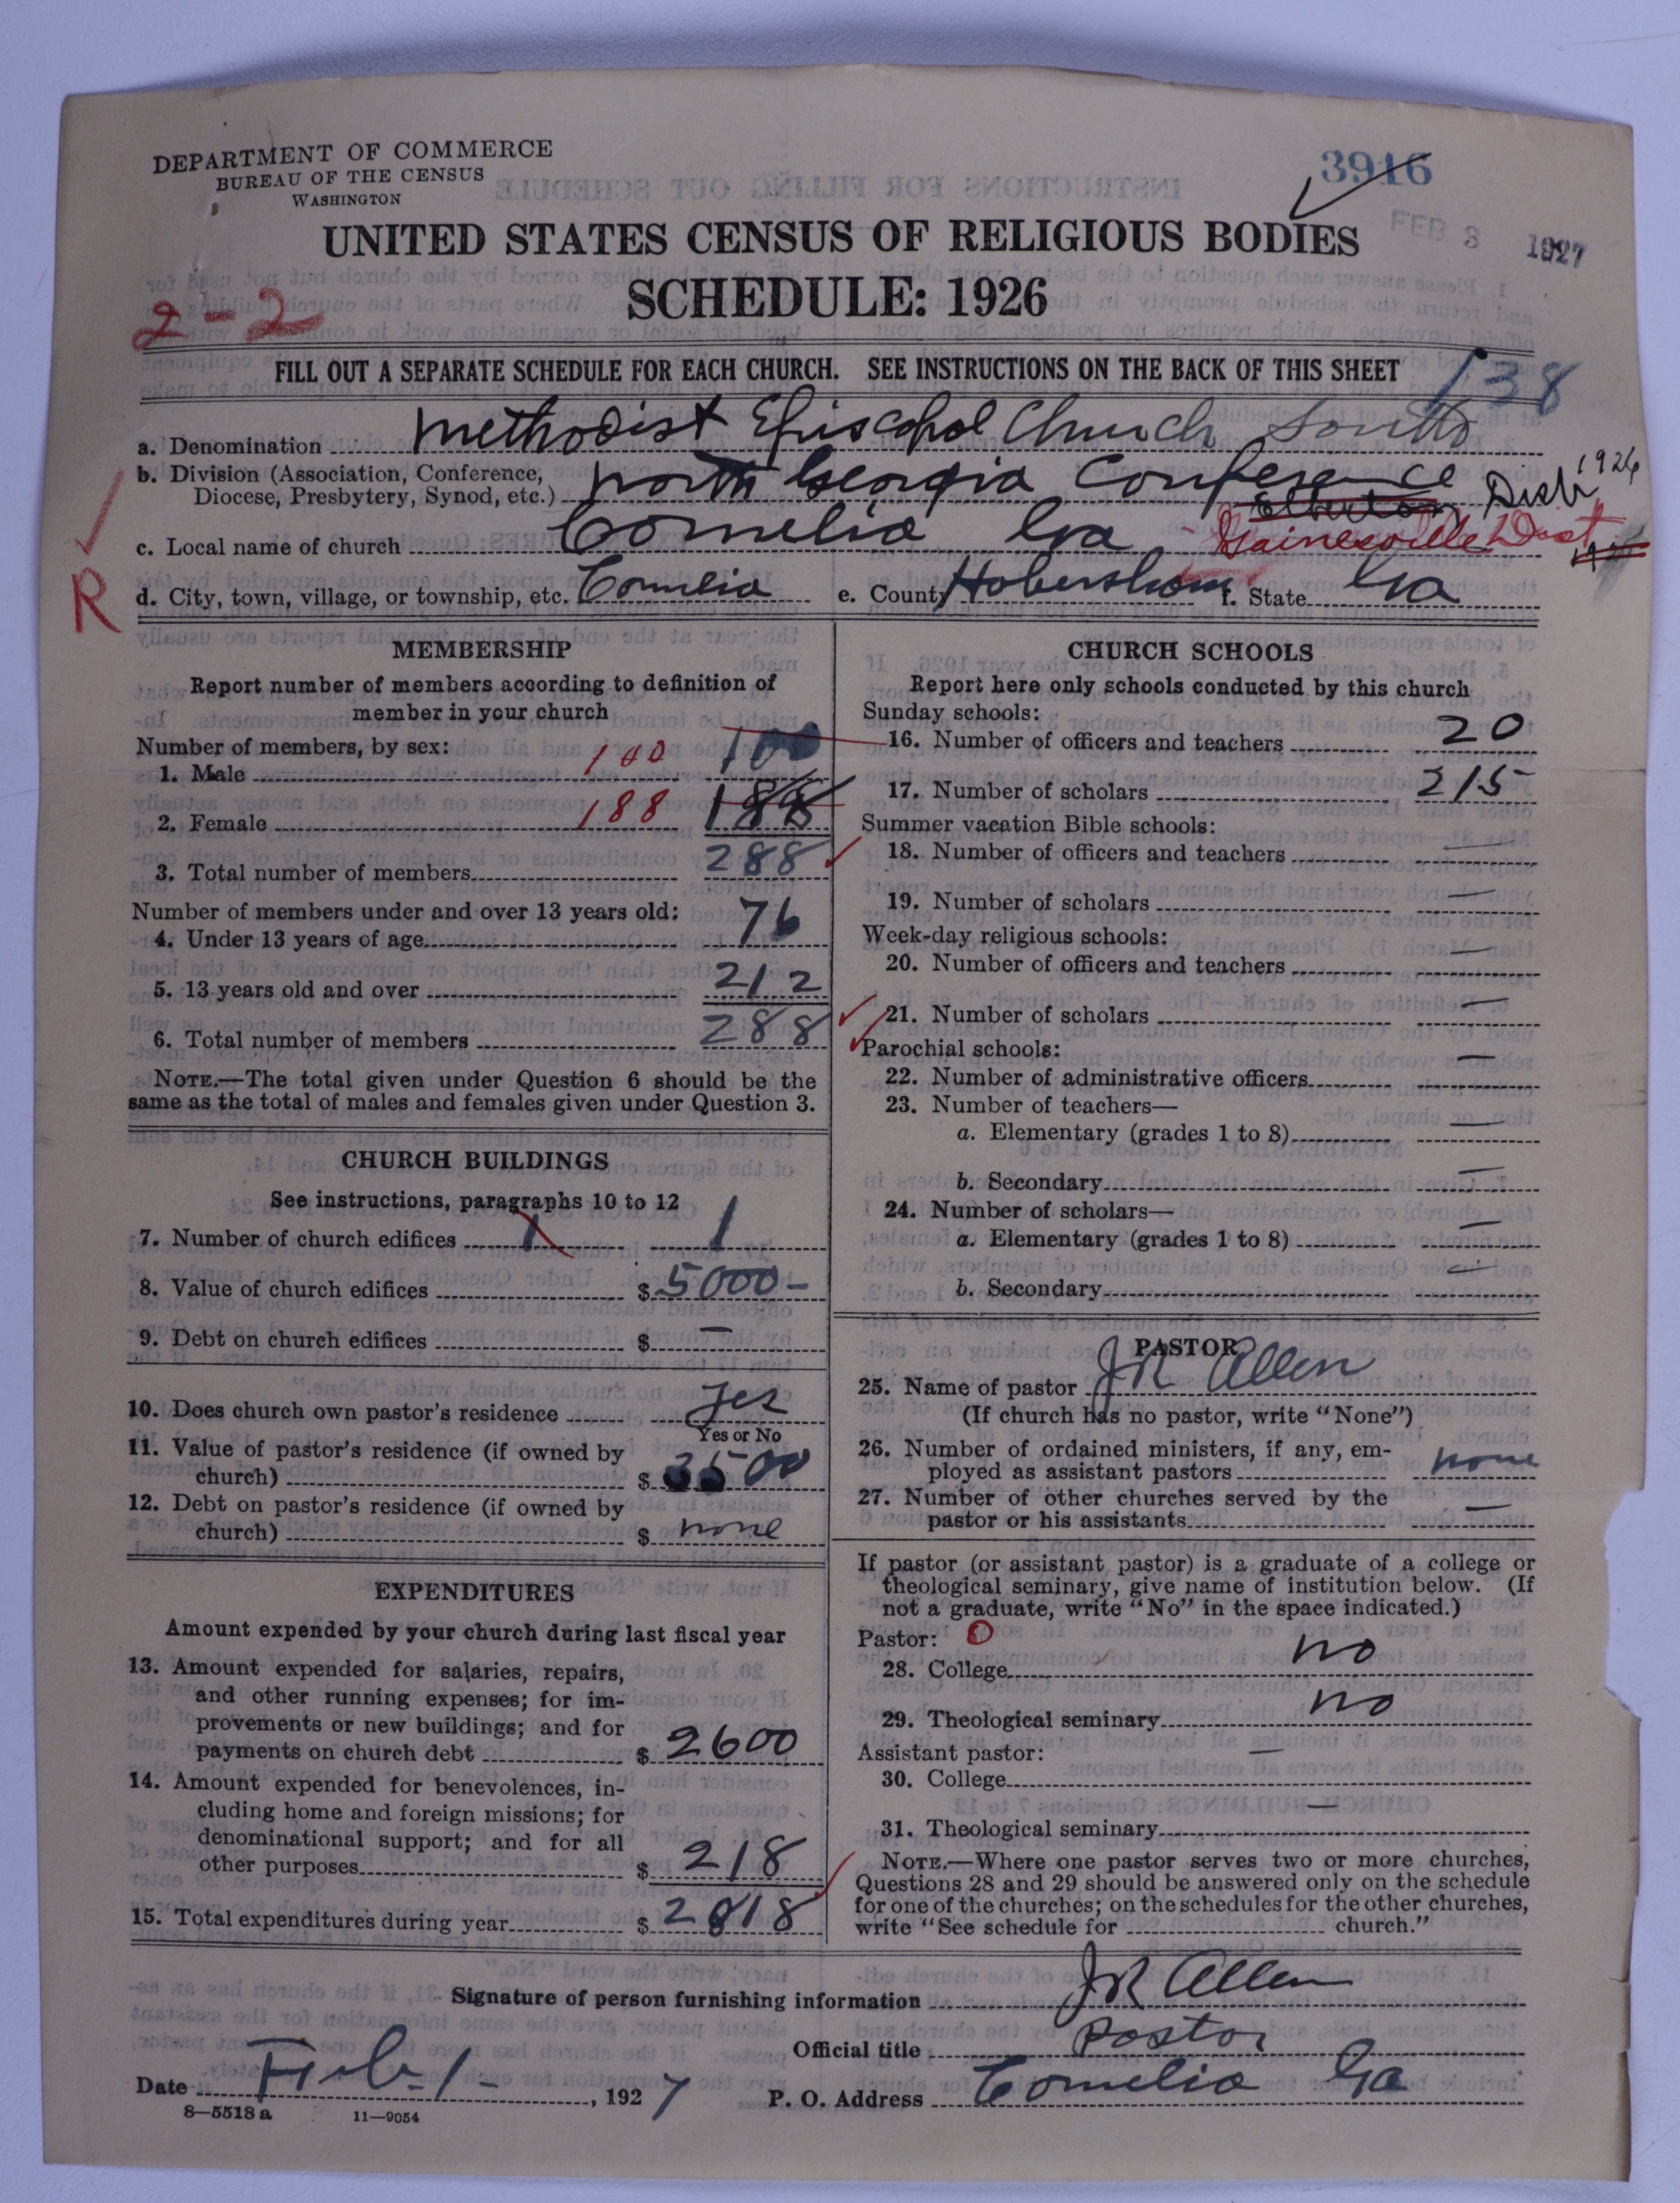 DEPARTMENT OF COMMERCE
BUREAU OF THE CENSUS
WASHINGTON
3916
FEB 3 1927
UNITED STATES CENSUS OF RELIGIOUS BODIES
SCHEDULE: 1926
2-2
FILL OUT A SEPARATE SCHEDULE FOR EACH CHURCH. SEE INSTRUCTIONS ON THE BACK OF THIS SHEET
138
a. Denomination Methodist Episcopal Church South
b. Division (Association, Conference,
Diocese, Presbytery, Synod, etc.) North Georgia Conference
Elberton Dist 1926
c. Local name of church Cornelia Ga Gainesville Dist
R
d. City, town, village, or township, etc. Cornelia e. County Habersham f. State Ga
MEMBERSHIP
Report number of members according to definition of
member in your church
Number of members, by sex:
1. Male 100 100
2. Female 188 188
3. Total number of members 288
Number of members under and over 13 years old:
4. Under 13 years of age 76
5. 13 years old and over 212
6. Total number of members 288
NOTE.—The total given under Question 6 should be the
same as the total of males and females given under Question 3.
CHURCH BUILDINGS
See instructions, paragraphs 10 to 12
7. Number of church edifices 1 1
8. Value of church edifices $ 5000-
9. Debt on church edifices $ —
10. Does church own pastor's residence yes
Yes or No
11. Value of pastor's residence (if owned by
church) $ 3500
12. Debt on pastor's residence (if owned by
church) $ none
EXPENDITURES
Amount expended by your church during last fiscal year
13. Amount expended for salaries, repairs,
and other running expenses; for im-
provements or new buildings; and for
payments on church debt $ 2600
14. Amount expended for benevolences, in-
cluding home and foreign missions; for
denominational support; and for all
other purposes $ 218
15. Total expenditures during year $ 2818
CHURCH SCHOOLS
Report here only schools conducted by this church
Sunday schools:
16. Number of officers and teachers 20
17. Number of scholars 215
Summer vacation Bible schools:
18. Number of officers and teachers —
19. Number of scholars —
Week-day religious schools:
20. Number of officers and teachers —
21. Number of scholars —
Parochial schools:
22. Number of administrative officers —
23. Number of teachers—
a. Elementary (grades 1 to 8) —
b. Secondary —
24. Number of scholars—
a. Elementary (grades 1 to 8) —
b. Secondary —
PASTOR
25. Name of pastor JR Allen
(If church has no pastor, write "None")
26. Number of ordained ministers, if any, em-
ployed as assistant pastors none
27. Number of other churches served by the
pastor or his assistants —
If pastor (or assistant pastor) is a graduate of a college or
theological seminary, give name of institution below. (If
not a graduate, write "No" in the space indicated.)
Pastor: 0
28. College no
29. Theological seminary no
Assistant pastor:
30. College —
31. Theological seminary —
NOTE.—Where one pastor serves two or more churches,
Questions 28 and 29 should be answered only on the schedule
for one of the churches; on the schedules for the other churches,
write "See schedule for church."
Signature of person furnishing information JR Allen
Official title Pastor
Date Feb. 1-, 1927 P. O. Address Cornelia Ga
8—5518 a 11—9054